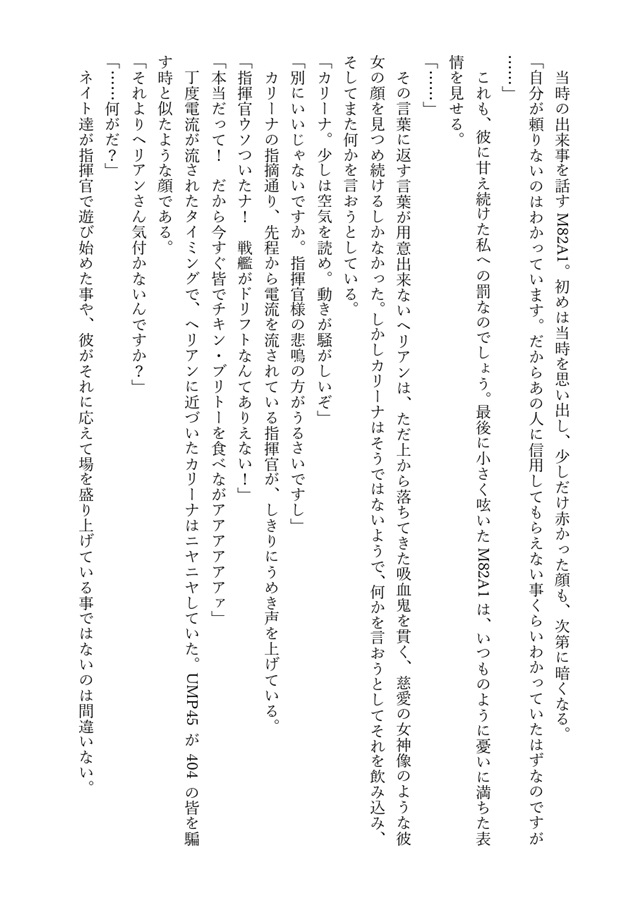 当時の出来事を話す M82A1。初めは当時を思い出し、少しだけ赤かった顔も、次第に暗くなる。
「自分が頼りないのはわかっています。だからあの人に信用してもらえない事くらいわかっていたはずなのですが
……」
これも、彼に甘え続けた私への罰なのでしょう。最後に小さく呟いた M82A1 は、いつものように憂いに満ちた表
情を見せる。
「……」
その言葉に返す言葉が用意出来ないヘリアンは、ただ上から落ちてきた吸血鬼を貫く、慈愛の女神像のような彼
女の顔を見つめ続けるしかなかった。しかしカリーナはそうではないようで、何かを言おうとしてそれを飲み込み、
そしてまた何かを言おうとしている。
「カリーナ。少しは空気を読め。動きが騒がしいぞ」
「別にいいじゃないですか。指揮官様の悲鳴の方がうるさいですし」
カリーナの指摘通り、先程から電流を流されている指揮官が、しきりにうめき声を上げている。
「指揮官ウソついたナ！　戦艦がドリフトなんてありえない！」
「本当だって！　だから今すぐ皆でチキン・ブリトーを食べながアアアアアァ」
丁度電流が流されたタイミングで、ヘリアンに近づいたカリーナはニヤニヤしていた。UMP45 が 404 の皆を騙
す時と似たような顔である。
「それよりヘリアンさん気付かないんですか？」
「……何がだ？」
ネイト達が指揮官で遊び始めた事や、彼がそれに応えて場を盛り上げている事ではないのは間違いない。